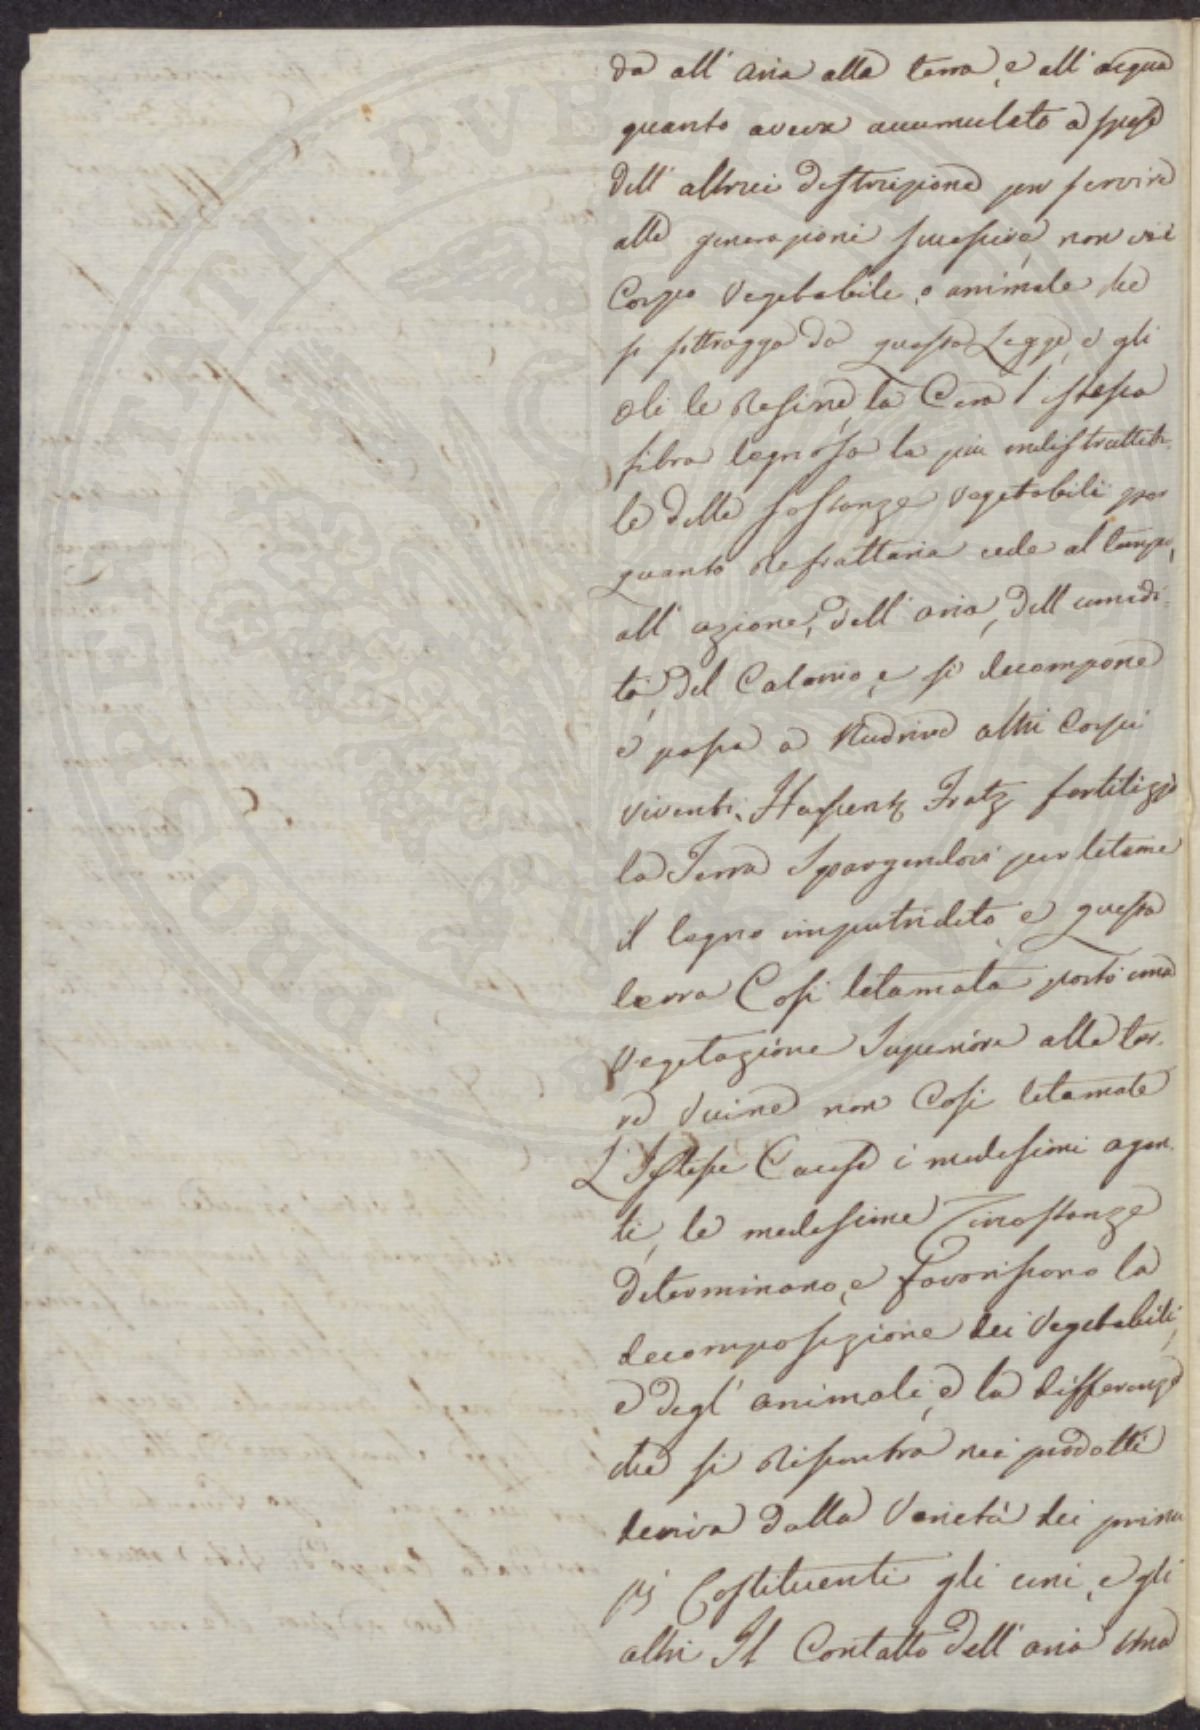 da all' aria alla terra, e all' acqua
quanto aveva accumulato a spese
dell' altrui destruzione per servire
alle generazioni successive, non vi è
Corpo Vegetabile, o animale che
si sottragga da questa Legge, e gli
oli le Resine, la Cera l' istessa
fibra legnosa la più indistruttibi-
le delle sostanze Vegetabili per
quanto Refrattaria cede al tempo,
all' azione, dell' aria, dell umidi-
tà, del Calorico, e si decompone
e passa a Nudrire altri Corpi
viventi. Hassentz Fratz fertilizzò
la Terra Spargendovi per letame
il legno imputridito, e questa
terra Così letamata portò una
Vegetazione Superiore alle ter-
re Vicine non Così letamate
L' Istesse Cause i medesimi agen-
ti, le medesime Circostanze
determinano, e favoriscono la
decomposizione dei Vegetabili,
e degl' animali, e la differenza
che si Riscontra nei prodotti
deriva dalla Varietà dei princi-
pj Costituenti gli uni, e gli
altri Il Contatto dell' aria una
PROSPERITATI PUBLICAE